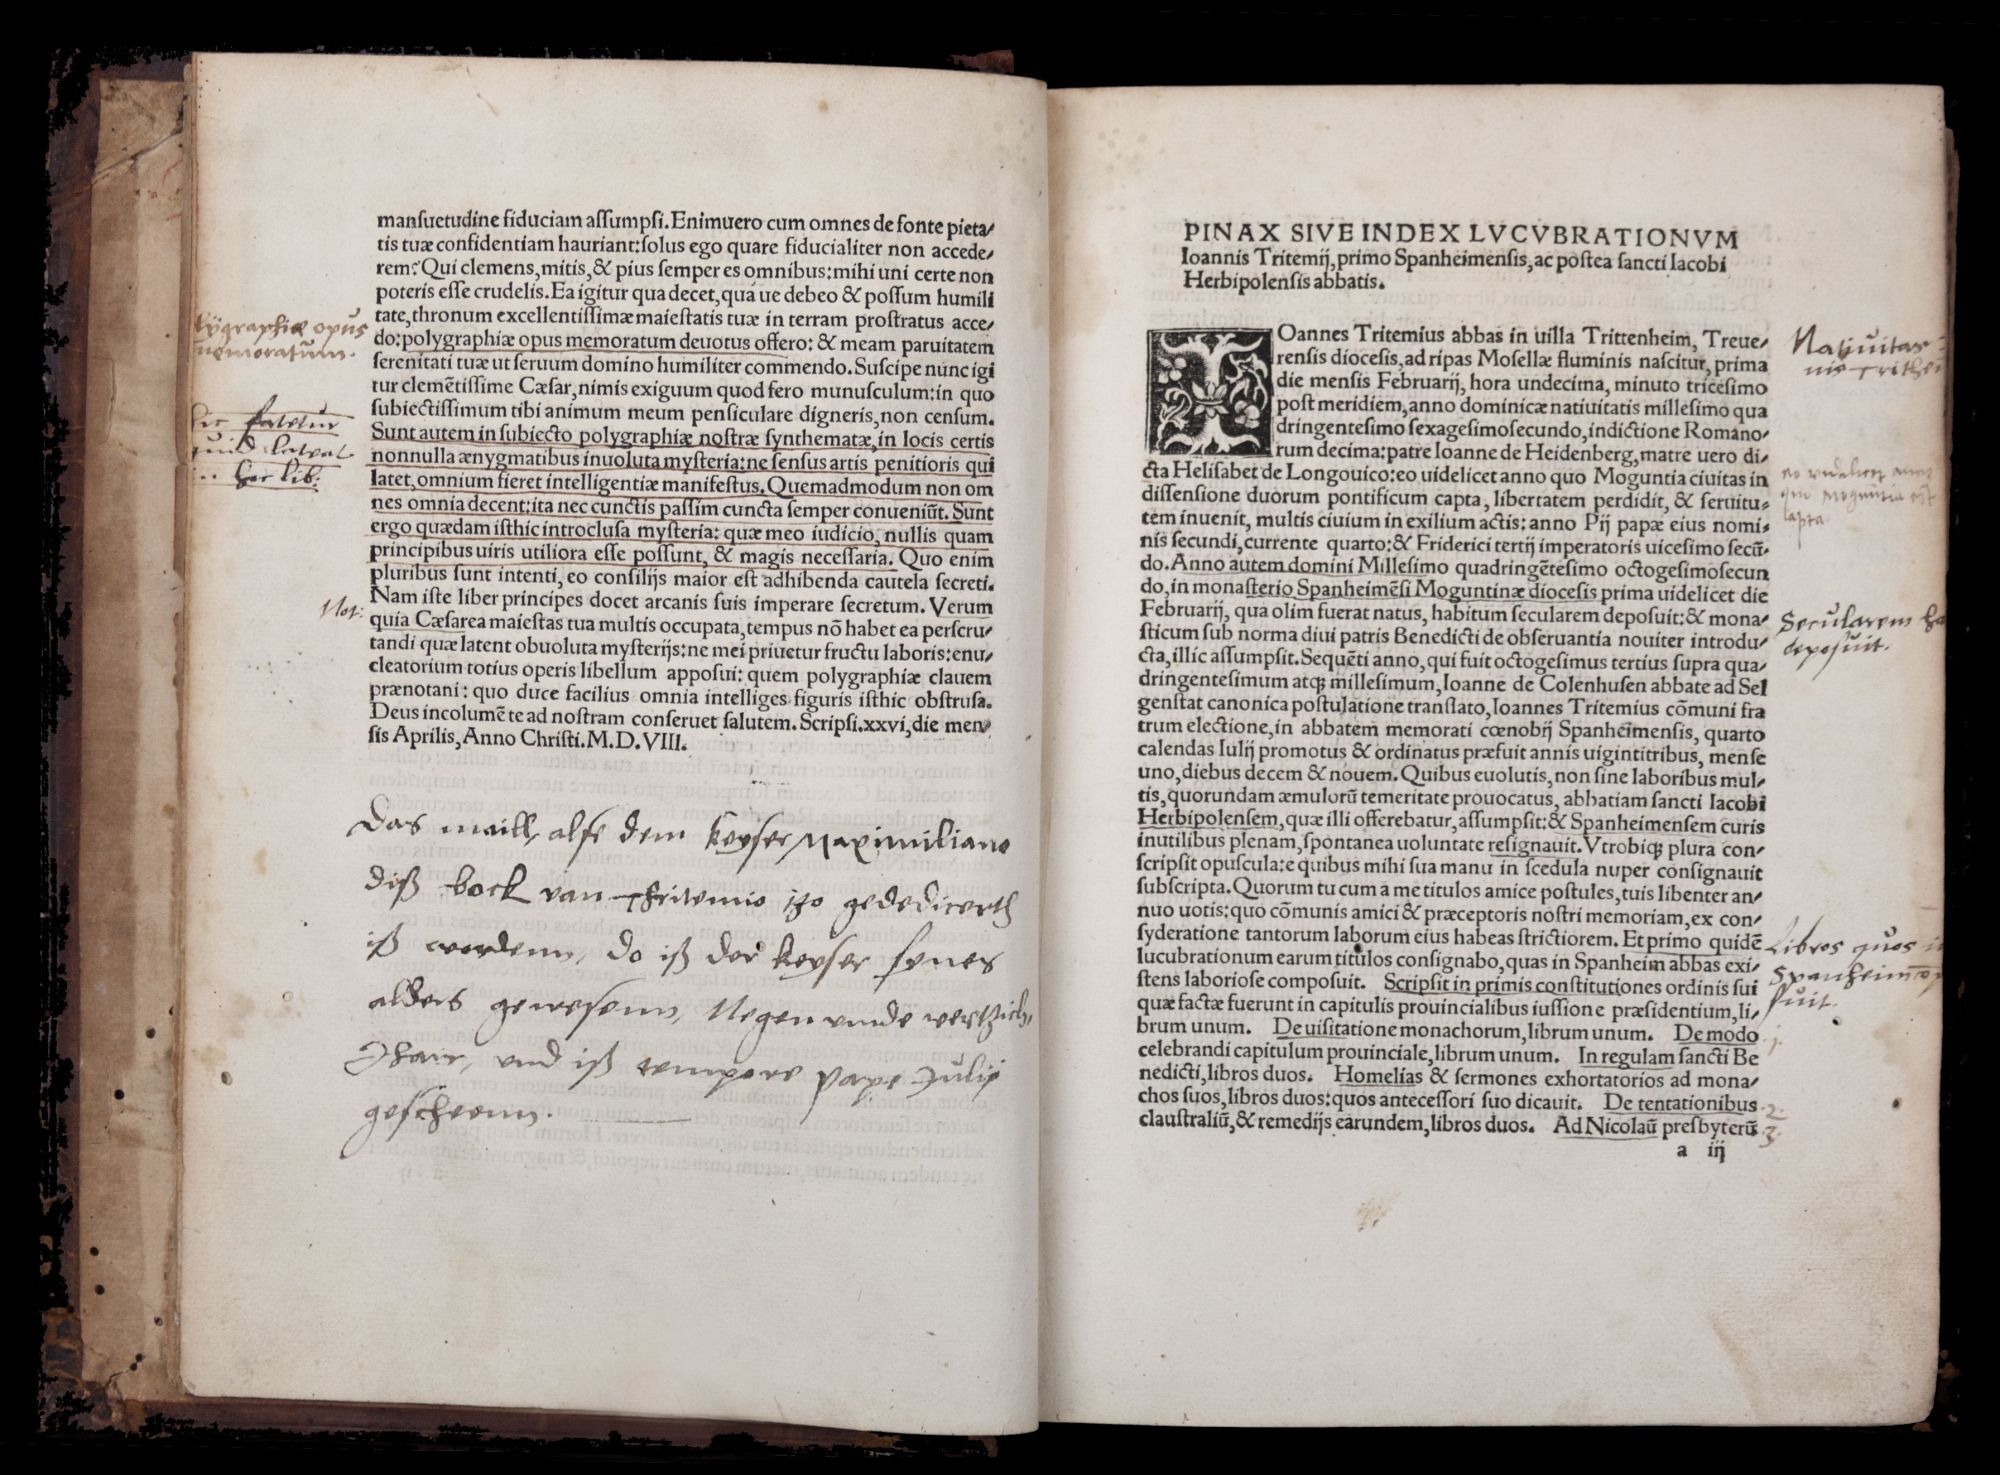 mansuetudine fiduciam assumpsi. Enimuero cum omnes de fonte pieta-
tis tuæ confidentiam hauriant: solus ego quare fiducialiter non accede-
rem? Qui clemens, mitis, & pius semper es omnibus: mihi uni certe non
poteris esse crudelis. Ea igitur qua decet, qua ue debeo & possum humili
tate, thronum excellentissimæ maiestatis tuæ in terram prostratus acce-
do: polygraphiæ opus memoratum deuotus offero: & meam paruitatem
serenitati tuæ ut seruum domino humiliter commendo. Suscipe nunc igi
tur clemētissime Cæsar, nimis exiguum quod fero munusculum: in quo
subiectissimum tibi animum meum pensiculare digneris, non censum.
Sunt autem in subiecto polygraphiæ nostræ synthematæ, in locis certis
nonnulla ænygmatibus inuoluta mysteria: ne sensus artis penitioris qui
latet, omnium fieret intelligentiæ manifestus. Quemadmodum non om
nes omnia decent: ita nec cunctis passim cuncta semper conueniūt. Sunt
ergo quædam isthic introclusa mysteria: quæ meo iudicio, nullis quam
principibus uiris utiliora esse possunt, & magis necessaria. Quo enim
pluribus sunt intenti, eo consilijs maior est adhibenda cautela secreti.
Nam iste liber principes docet arcanis suis imperare secretum. Verum
quia Cæsarea maiestas tua multis occupata, tempus nō habet ea perscru-
tandi quæ latent obuoluta mysterijs: ne mei priuetur fructu laboris: enu-
cleatorium totius operis libellum apposui: quem polygraphiæ clauem
prænotani: quo duce facilius omnia intelliges figuris isthic obstrusa.
Deus incolumē te ad nostram conseruet salutem. Scripsi. xxvi, die men-
sis Aprilis, Anno Christi. M. D. VIII.
lygraphiæ opus
memoratum.
hic fatetur
quid lateat
in hoc lib:
Not:
Das maill, alse dem Keyser Maximiliano
diß bock van Thritemio izo gededicerth
iß wordenn, do iß der Keyser synes
alders gewesenn, Negen unnde vertzich
Jhair, und iß tempore Pape Julij
gescheenn.
PINAX SIVE INDEX LVCVBRATIONVM
Ioannis Tritemij, primo Spanheimensis, ac postea sancti Iacobi
Herbipolensis abbatis.
IOannes Tritemius abbas in uilla Trittenheim, Treue-
rensis diocesis, ad ripas Mosellæ fluminis nascitur, prima
die mensis Februarij, hora undecima, minuto tricesimo
post meridiem, anno dominicæ natiuitatis millesimo qua
dringentesimo sexagesimosecundo, indictione Romano-
rum decima: patre Ioanne de Heidenberg, matre uero di-
cta Helisabet de Longouico: eo uidelicet anno quo Moguntia ciuitas in
dissensione duorum pontificum capta, libertatem perdidit, & seruitu-
tem inuenit, multis ciuium in exilium actis: anno Pij papæ eius nomi-
nis secundi, currente quarto: & Friderici tertij imperatoris uicesimo secū-
do. Anno autem domini Millesimo quadringētesimo octogesimosecun
do, in monasterio Spanheimēsi Moguntinæ diocesis prima uidelicet die
Februarij, qua olim fuerat natus, habitum secularem deposuit: & mona-
sticum sub norma diui patris Benedicti de obseruantia nouiter introdu-
cta, illic assumpsit. Sequēti anno, qui fuit octogesimus tertius supra qua-
dringentesimum atq; millesimum, Ioanne de Colenhusen abbate ad Sel
genstat canonica postulatione translato, Ioannes Tritemius cōmuni fra
trum electione, in abbatem memorati cœnobij Spanheimensis, quarto
calendas Iulij promotus & ordinatus præfuit annis uigintitribus, mense
uno, diebus decem & nouem. Quibus euolutis, non sine laboribus mul-
tis, quorundam æmulorū temeritate prouocatus, abbatiam sancti Iacobi
Herbipolensem, quæ illi offerebatur, assumpsit: & Spanheimensem curis
inutilibus plenam, spontanea uoluntate resignauit. Vtrobiq; plura con-
scripsit opuscula: e quibus mihi sua manu in scedula nuper consignauit
subscripta. Quorum tu cum a me titulos amice postules, tuis libenter an-
nuo uotis: quo cōmunis amici & præceptoris nostri memoriam, ex con-
syderatione tantorum laborum eius habeas strictiorem. Et primo quidē
lucubrationum earum titulos consignabo, quas in Spanheim abbas exi-
stens laboriose composuit. Scripsit in primis constitutiones ordinis sui
quæ factæ fuerunt in capitulis prouincialibus iussione præsidentium, li-
brum unum. De uisitatione monachorum, librum unum. De modo
celebrandi capitulum prouinciale, librum unum. In regulam sancti Be
nedicti, libros duos. Homelias & sermones exhortatorios ad mona-
chos suos, libros duos: quos antecessori suo dicauit. De tentationibus
claustraliū, & remedijs earundem, libros duos. Ad Nicolaū presbyterū
a iij
Natiuitas
nis Trithem
eo videlicet anno
quo Moguntia est
capta
Secularem ha
deposuit.
Libros quos i
Spanheim
suit.
1.
2.
3.